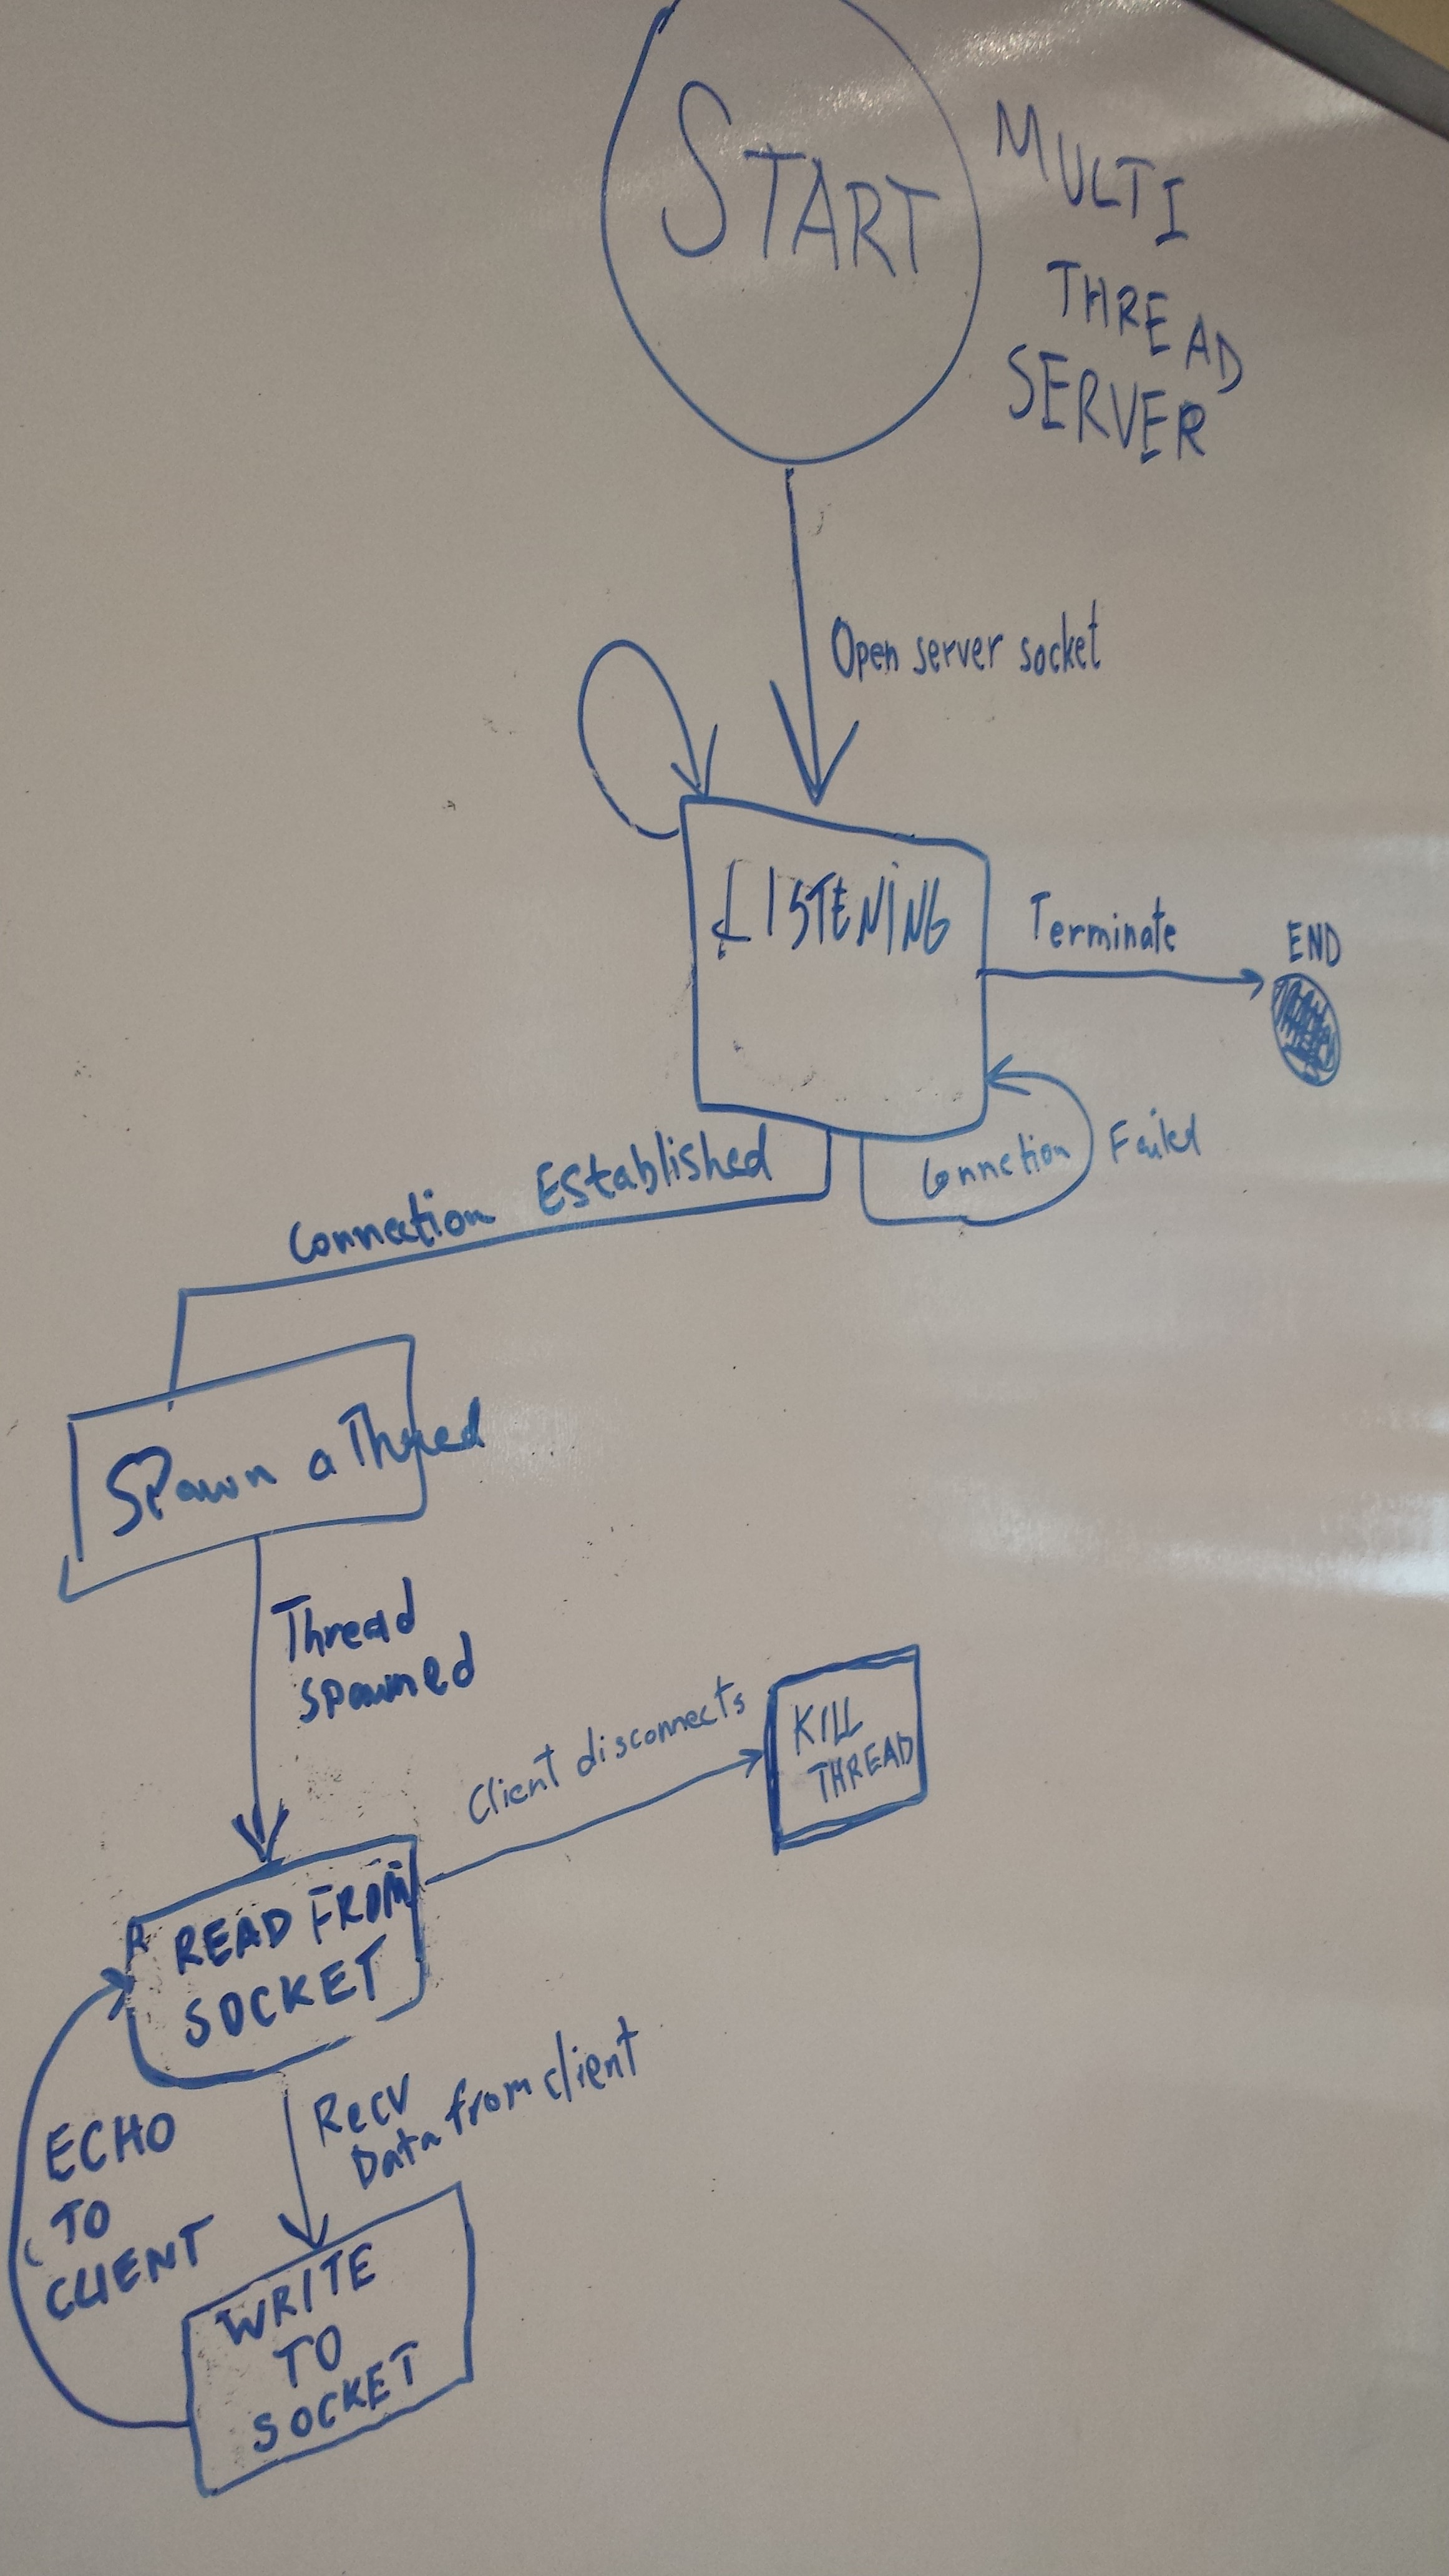 START
MULTI
THREAD
SERVER
Open server socket
LISTENING
Terminate
END
Connection Established
Connction Failed
Spawn a Thread
Thread
Spawned
Client disconnects
KILL
THREAD
READ FROM
SOCKET
Recv
Data from client
ECHO
TO
CLIENT
WRITE
TO
SOCKET